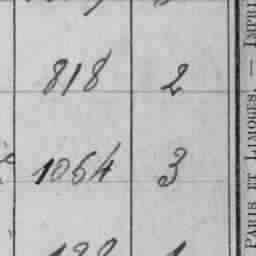 818 2
1064 3
PARIS ET LIMOGES. — IMPRI